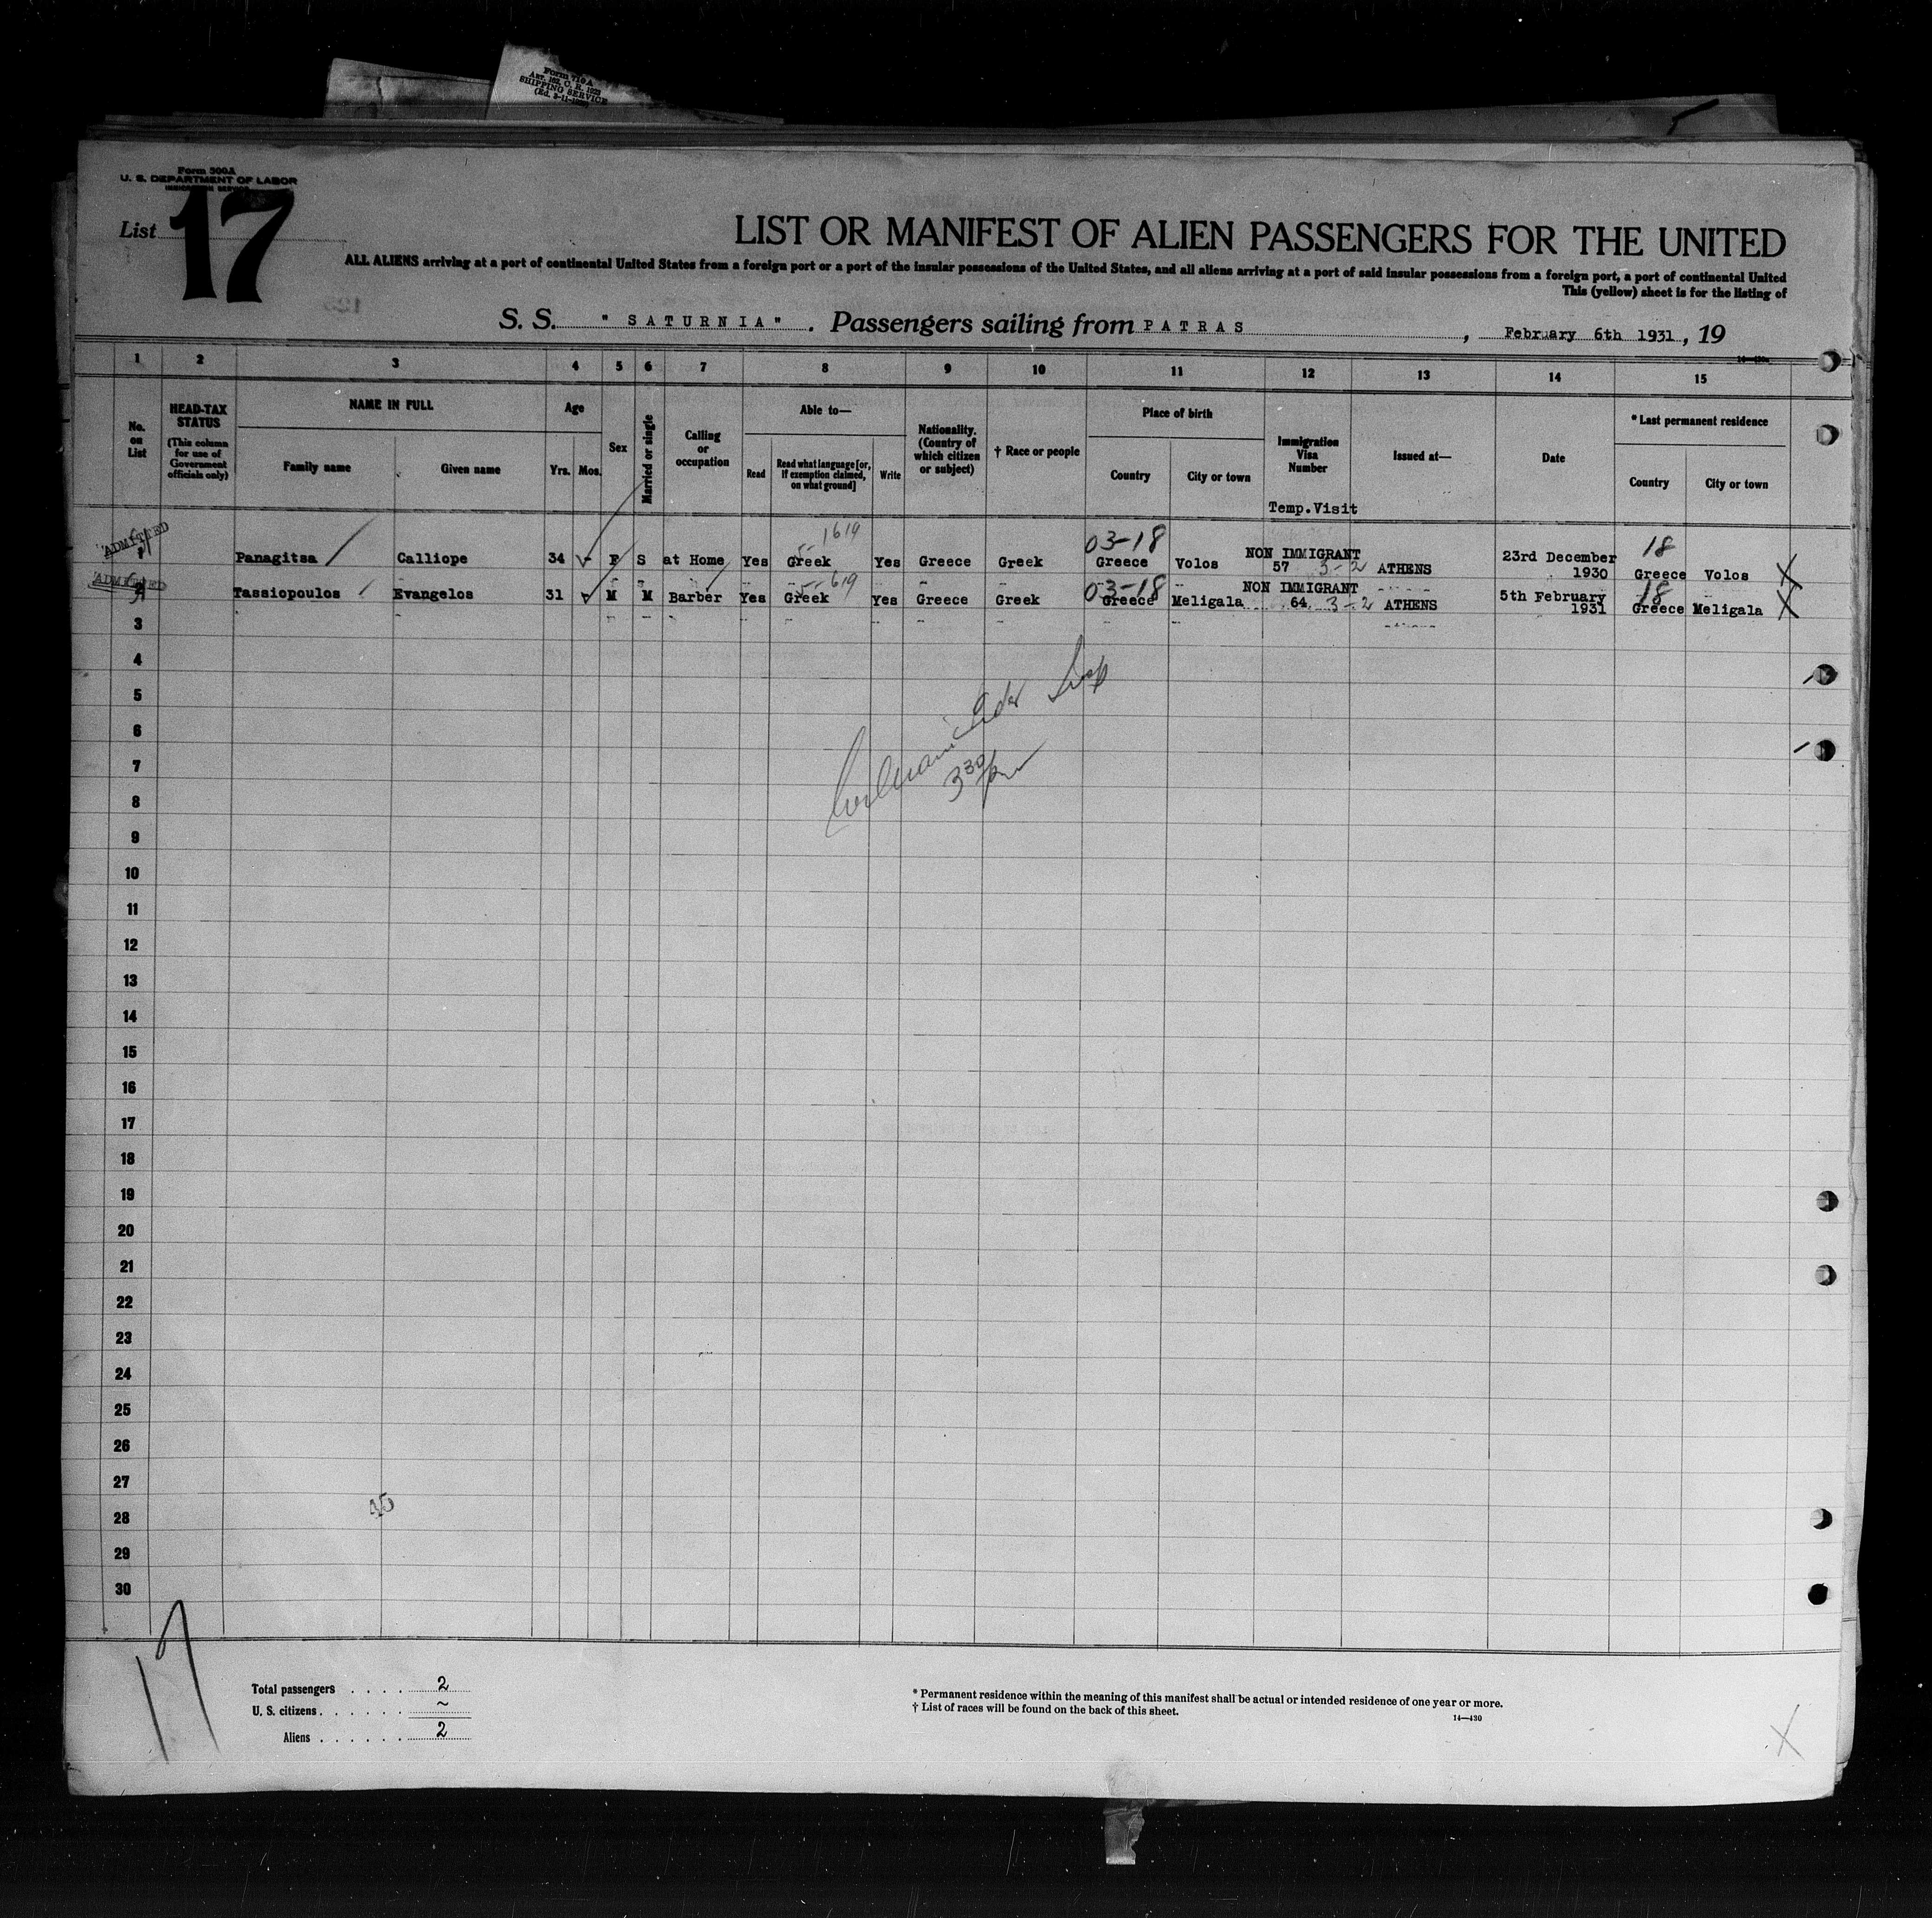 Form 710A
ART. 162, C. R. 1923
SHIPPING SERVICE
Form 500A
U. S. DEPARTMENT OF LABOR
IMMIGRATION SERVICE
List 17
LIST OR MANIFEST OF ALIEN PASSENGERS FOR THE UNITED
ALL ALIENS arriving at a port of continental United States from a foreign port or a port of the insular possessions of the United States, and all aliens arriving at a port of said insular possessions from a foreign port, a port of continental United
This (yellow) sheet is for the listing of
S. S. "SATURNIA". Passengers sailing from PATRAS, February 6th 1931, 19
1 2 3 4 5 6 7 8 9 10 11 12 13 14 15
No. on List
HEAD-TAX STATUS
(This column for use of Government officials only)
NAME IN FULL
Family name
Given name
Age
Yrs. Mos.
Sex
Married or single
Calling or occupation
Able to—
Read
Read what language [or, if exemption claimed, on what ground]
Write
Nationality. (Country of which citizen or subject)
† Race or people
Place of birth
Country
City or town
Immigration Visa Number
Temp.Visit
Issued at—
Date
* Last permanent residence
Country
City or town
ADMITTED
1619
03-18
18
Panagitsa Calliope 34 F S at Home Yes Greek Yes Greece Greek Greece Volos NON IMMIGRANT 57 3-2 ATHENS 23rd December 1930 Greece Volos X
ADMITTED
619
03-18
18
Tassiopoulos Evangelos 31 M M Barber Yes Greek Yes Greece Greek Greece Meligala NON IMMIGRANT 64 3-2 ATHENS 5th February 1931 Greece Meligala X
3
4
5
6
3 30 pm
7
8
9
10
11
12
13
14
15
16
17
18
19
20
21
22
23
24
25
26
27
28
29
30
17
Total passengers . . . . 2
U. S. citizens . . . . . . ~
Aliens . . . . . . 2
* Permanent residence within the meaning of this manifest shall be actual or intended residence of one year or more.
† List of races will be found on the back of this sheet.
14—430
X